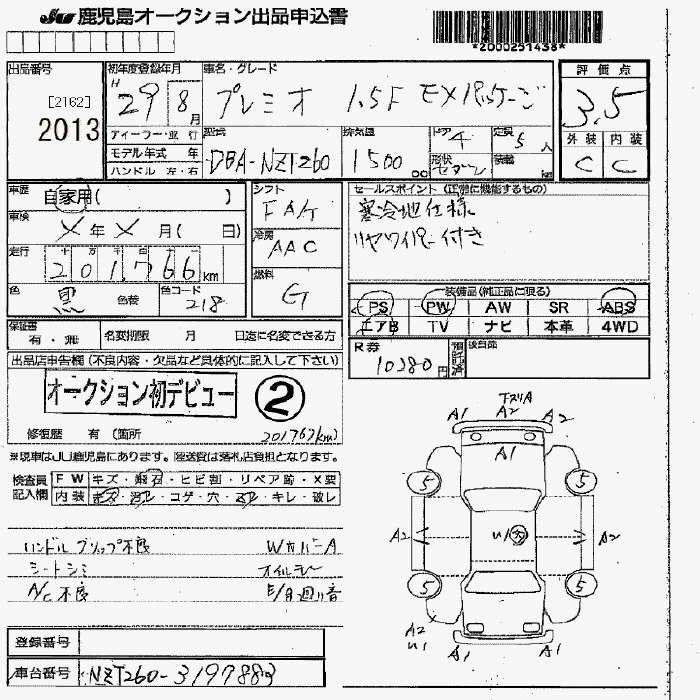 JU 鹿児島オークション出品申込書
*2000251438*
出品番号
[2162]
2013
初年度登録年月
H 29 8月
車名・グレード
プレミオ 1.5F EXパッケージ
評価点
3.5
外装 内装
C C
ディーラー・並行
モデル年式 年
ハンドル 左・右
型式
DBA-NZT260
排気量
1500 cc
ドア
4
形状
セダン
定員
5人
積載
kg
車歴
自家用( )
車検
X年X月( 日)
走行
201,766km
色
黒 色替
色コード
218
シフト
FA/T
冷房
AAC
燃料
G
セールスポイント(正常に機能するもの)
寒冷地仕様
リヤワイパー付き
装備品(純正品に限る)
PS PW AW SR ABS
エアB TV ナビ 本革 4WD
保証書
有・無
名変期限 月 日迄に名変できる方
R券
10280円
預託済
出品店申告欄(不良内容・欠品など具体的に記入して下さい)
オークション初デビュー ②
修復歴 有(箇所 201767km)
※現車はJU鹿児島にあります。陸送費は落札店負担となります。
検査員記入欄
FW キズ・飛石・ヒビ割・リペア跡・X要
内装 キズ・汚レ・コゲ・穴・スレ・キレ・破レ
ハンドルグリップ不良 WカバーA
シートシミ オイルモレ
A/C不良 E/G廻り音
登録番号
車台番号 NZT260-3197883
A1 A2 A2
A1
5 5
A2 A2
5 5
A2
U1
A1 A1